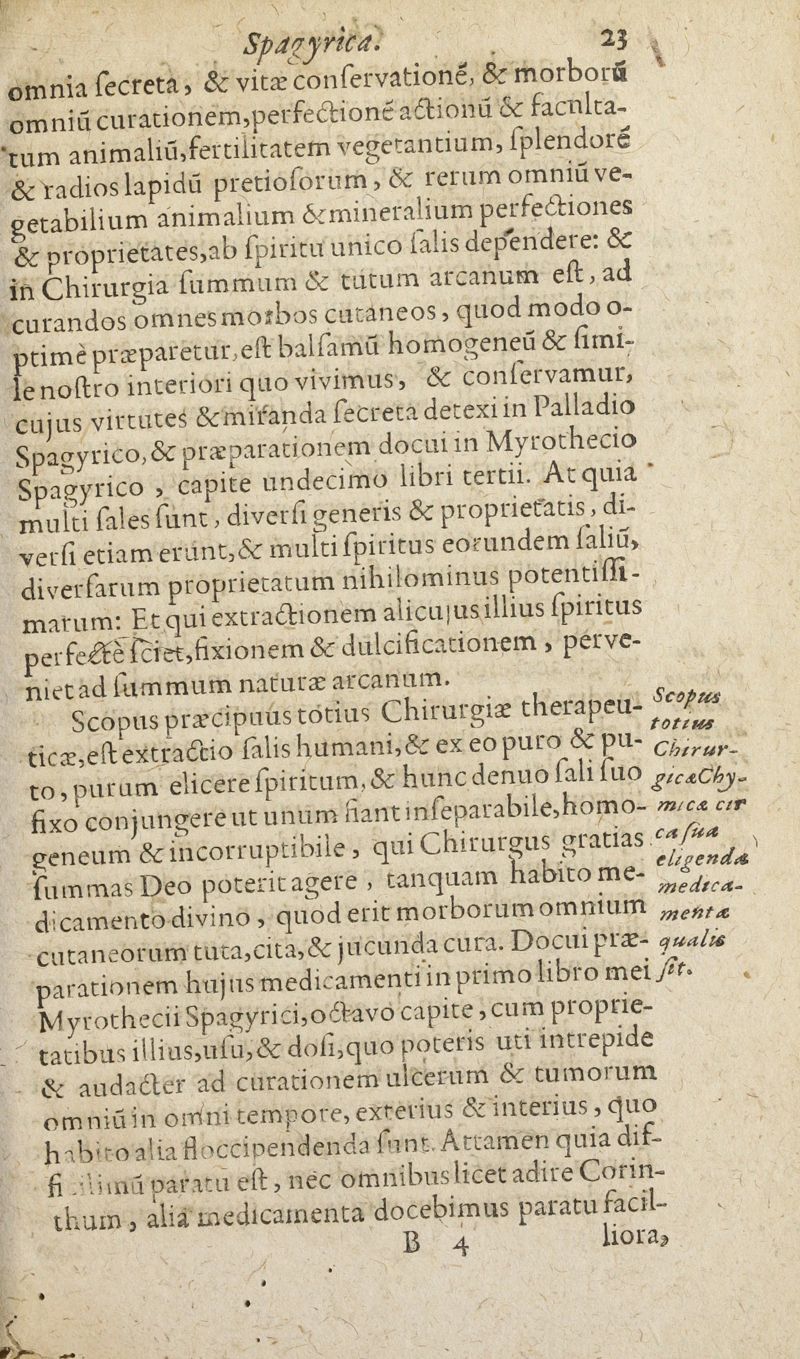 Spagyrica. 23
omnia ſecreta, & vitæ conſervationẽ, & morborũ
omniũ curationem,perfectionẽ actionũ & faculta-
tum animaliũ,fertilitatem vegetantium, ſplendorẽ
& radios lapidũ pretioſorum, & rerum omniũ ve-
getabilium animalium & mineralium perfectiones
& proprietates,ab ſpiritu unico ſalis dependere: &
in Chirurgia ſummum & tutum arcanum eſt, ad
curandos omnes morbos cutaneos, quod modo o-
ptimè præparetur,eſt balſamũ homogeneũ & ſimi-
le noſtro interiori quo vivimus, & conſervamur,
cujus virtutes & miranda ſecreta detexi in Palladio
Spagyrico,& præparationem docui in Myrothecio
Spagyrico , capite undecimo libri tertii. At quia
multi ſales ſunt, diverſi generis & proprietatis, di-
verſi etiam erunt,& multi ſpiritus eorundem ſaliũ,
diverſarum proprietatum nihilominus potentiſſi-
marum: Et qui extractionem alicujus illius ſpiritus
perfectè ſciet,fixionem & dulcificationem , perve-
niet ad ſummum naturæ arcanum.
Scopus præcipuus totius Chirurgiæ therapeu-
ticæ,eſt extractio ſalis humani,& ex eo puro & pu-
to, purum elicere ſpiritum, & hunc denuo ſali ſuo
fixo conjungere ut unum fiant inſeparabile,homo-
geneum & incorruptibile, qui Chirurgus gratias
ſummas Deo poterit agere , tanquam habito me-
dicamento divino, quod erit morborum omnium
cutaneorum tuta,cita,& jucunda cura. Docui præ-
parationem hujus medicamenti in primo libro mei
Myrothecii Spagyrici,octavo capite, cum proprie-
tatibus illius,uſu,& doſi,quo poteris uti intrepide
& audacter ad curationem ulcerum & tumorum
omniũ in omni tempore, exterius & interius, quo
habito alia floccipendenda ſunt. Attamen quia dif-
ficillimũ paratu eſt, nec omnibus licet adire Corin-
thum, alia medicamenta docebimus paratu facil-
B 4 liora,
Scopus
totius
Chirur-
gicæ Chy-
micæ cir
ca ſua
eligenda
medica-
menta
qualis
ſit.